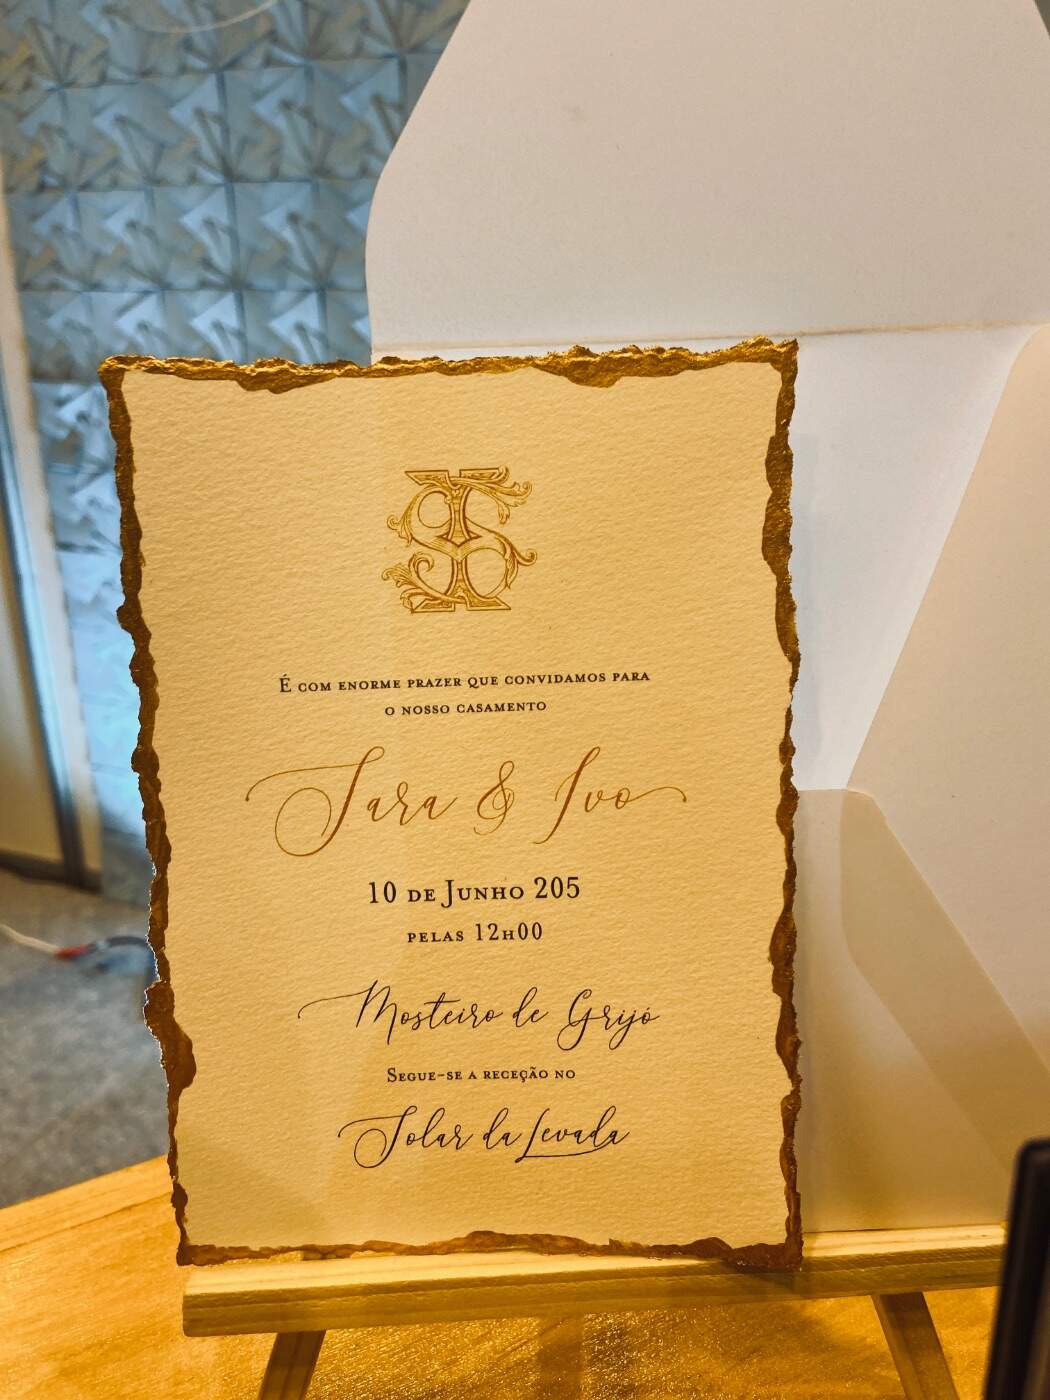 IS
É com enorme prazer que convidamos para
o nosso casamento
Sara & Ivo
10 de Junho 205
pelas 12h00
Mosteiro de Grijó
Segue-se a receção no
Solar da Levada